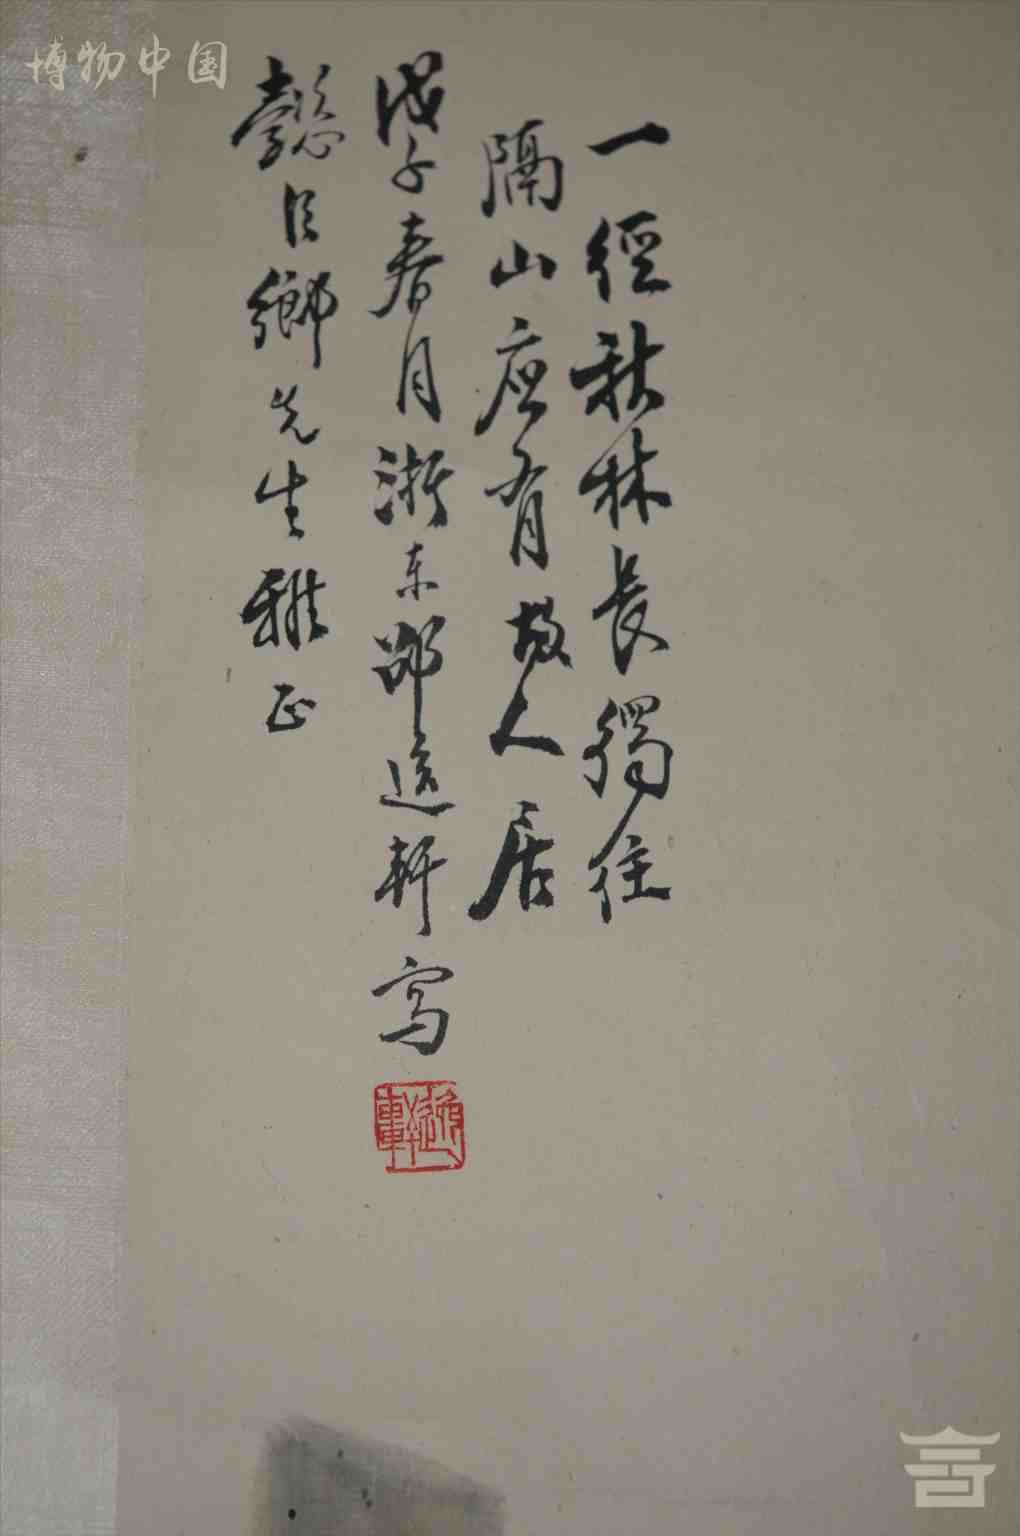 博物中国
一徑秋林長獨往
隔山應有故人居
戊子春月浙東邵逸軒寫
懿臣鄉先生雅正
逸軒